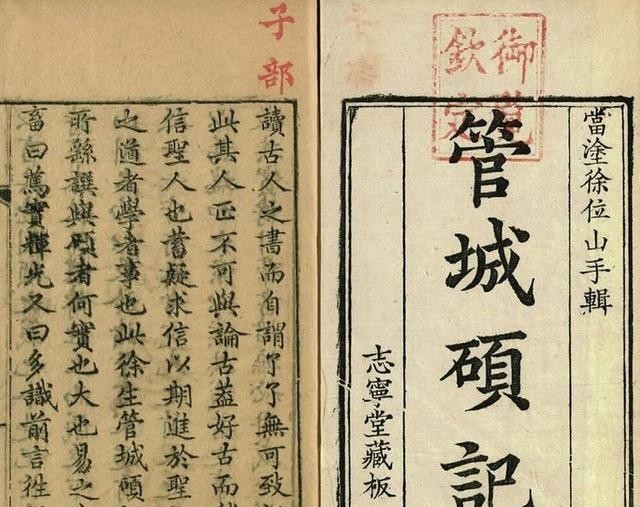 當塗徐位山手輯
管城碩記
志寧堂藏板
御覽
欽定
子部
讀古人之書而自謂了了無可致
此其人正不可與論古葢好古而
信聖人也蓄疑求信以期進於聖
之道者學者事也此徐生管城碩
所繇譔與碩者何實也大也易之
畜曰篤實輝光又曰多識前言徃